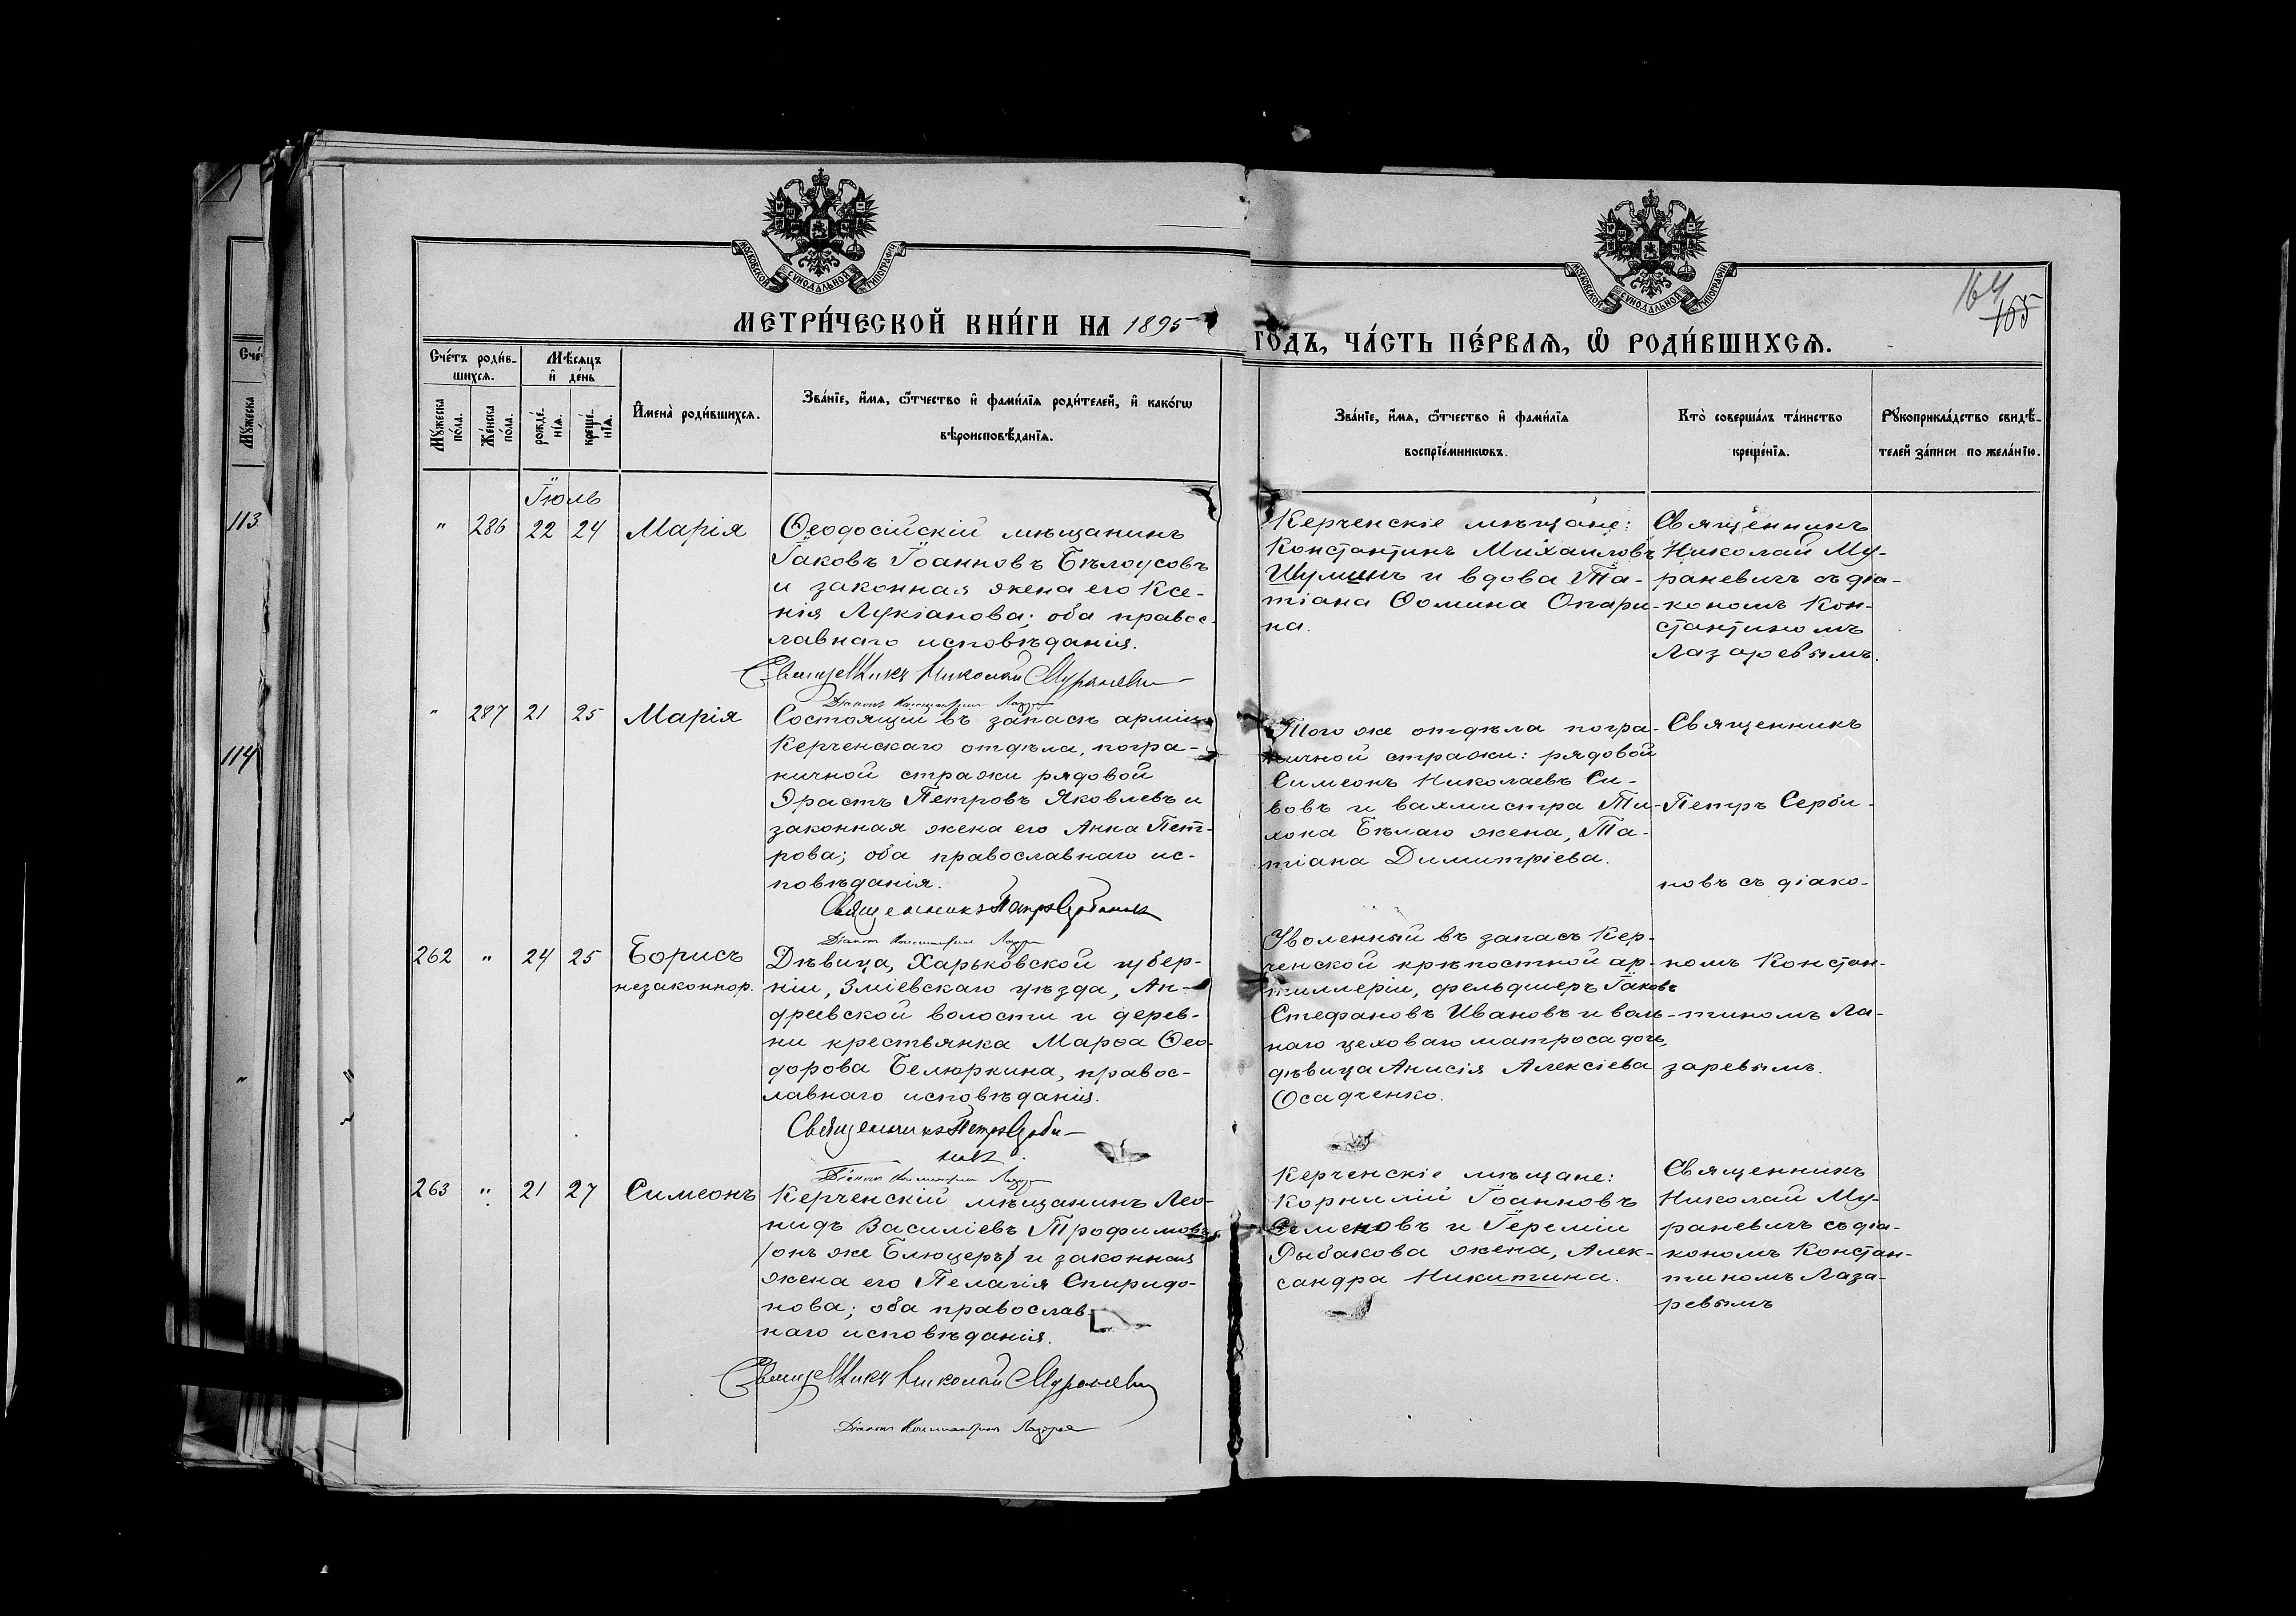 МОСКОВСКОЙ СѴНОДАЛЬНОЙ ТИПОГРАФІИ
МОСКОВСКОЙ СѴНОДАЛЬНОЙ ТИПОГРАФІИ
164
165
МЕТРИ́ЧЕСКОЙ КНИ́ГИ НА 1895
ГОДЪ, ЧА́СТЬ ПЕ́РВАѦ, Ѡ РОДИ́ВШИХСѦ.
Сче́тъ роди́в-
шихсѧ.
Мѣ́сѧцъ
и҆ де́нь
Мꙋ́жеска
по́ла.
Же́нска
по́ла.
рожде́-
нїѧ.
креще́-
нїѧ.
И҆мена̀ роди́вшихсѧ.
Зва́нїе, и҆́мѧ, ѻ҆́тчество и҆ фами́лїѧ роди́телей, и҆ како́гѡ
вѣроисповѣ́данїѧ.
Зва́нїе, и҆́мѧ, ѻ҆́тчество и҆ фами́лїѧ
воспрїе́мникѡвъ.
Кто̀ соверша́лъ та́инство
креще́нїѧ.
Рꙋкоприкла́дство свидѣ́-
телей за́писи по жела́нїю.
Сче́
Мꙋ́жеска
113
114
Іюль
" 286 22 24 Марія
Ѳеодосійскій мѣщанинъ
Іаковъ Іоанновъ Бѣлоусовъ
и законная жена его Ксе-
нія Лукіанова; оба правос-
лавнаго исповѣданія.
Священникъ Николай Мураневичъ
Діаконъ Константинъ Лазаревъ
Керченскіе мѣщане:
Константинъ Михаиловъ
Шумшнъ и вдова Та-
тіана Ѳомина Опари-
на.
Священникъ
Николай Му-
раневичъ съ діа-
кономъ Кон-
стантиномъ
Лазаревымъ.
" 287 21 25 Марія
Состоящій въ запасѣ арміи
Керченскаго отдѣла, погра-
ничной стражи рядовой
Эрастъ Петровъ Яковлевъ и
законная жена его Анна Пет-
рова; оба православнаго ис-
повѣданія.
Священникъ Петръ Сербиновъ
Діаконъ Константинъ Лазаревъ
Того же отдѣла погра-
ничной стражи: рядовой
Симеонъ Николаевъ Си-
вовъ и вахмистра Ти-
хона Бѣлаго жена, Та-
тіана Димитріева.
Священникъ
Петръ Серби-
новъ съ діако-
номъ Констан-
тиномъ Ла-
заревымъ.
262 " 24 25 Борисъ
незаконнор.
Дѣвица, Харьковской губер-
ніи, Зміевскаго уѣзда, Ан-
дреевской волости и дерев-
ни крестьянка Марѳа Ѳео-
дорова Белюркина, правос-
лавнаго исповѣданія.
Священникъ Петръ Серби-
новъ.
Діаконъ Константинъ Лазаревъ
Уволенный въ запасъ Кер-
ченской крѣпостной ар-
тиллеріи, фельдшеръ Іаковъ
Стефановъ Ивановъ и воль-
наго цеховаго матроса дочь,
дѣвица Анисія Алексіева
Осадченко.
263 " 21 27 Симеонъ
Керченскій мѣщанинъ Лео-
нидъ Василіевъ Трофимовъ
/онъ же Блюцеръ/ и законная
жена его Пелагія Спиридо-
нова; оба православ-
наго исповѣданія.
Священникъ Николай Мураневичъ
Діаконъ Константинъ Лазаревъ
Керченскіе мѣщане:
Корнилій Іоанновъ
Семеновъ и Іереміи
Рыбакова жена, Алек-
сандра Никитина.
Священникъ
Николай Му-
раневичъ съ діа-
кономъ Констан-
тиномъ Лаза-
ревымъ